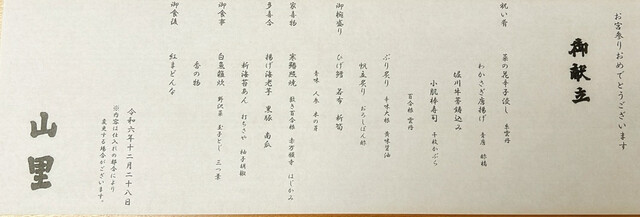 お宮参りおめでとうございます
御献立
祝い肴
菜の花辛子浸し 生雲丹
わかさぎ唐揚げ 青唐 酢橘
堀川牛蒡鋳込み
小肌棒寿司 千枚かぶら
百合根 雲丹
ぶり炙り 辛味大根 黄味醤油
帆立炙り おろしぽん酢
御椀盛り
ひげ鱈 若布 新筍
香味 人参 木の芽
家喜物
寒鰆照焼 敷き百合根 赤万願寺 はじかみ
多喜合
揚げ海老芋 黒豚 南瓜
新海苔あん 打ちさや 柚子胡椒
御食事
白魚雑炊 野沢菜 玉子とじ 三つ葉
香の物
御食後
紅まどんな
令和六年十二月二十八日
※内容は仕入れの都合により
変更する場合がございます。
山里